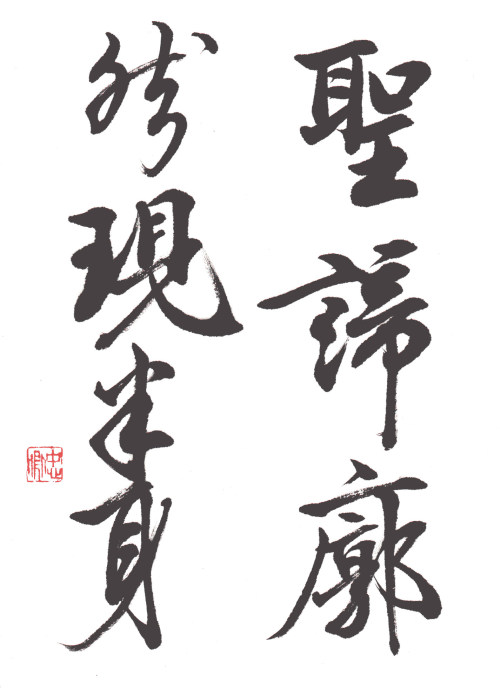 聖諦廓
然現半身